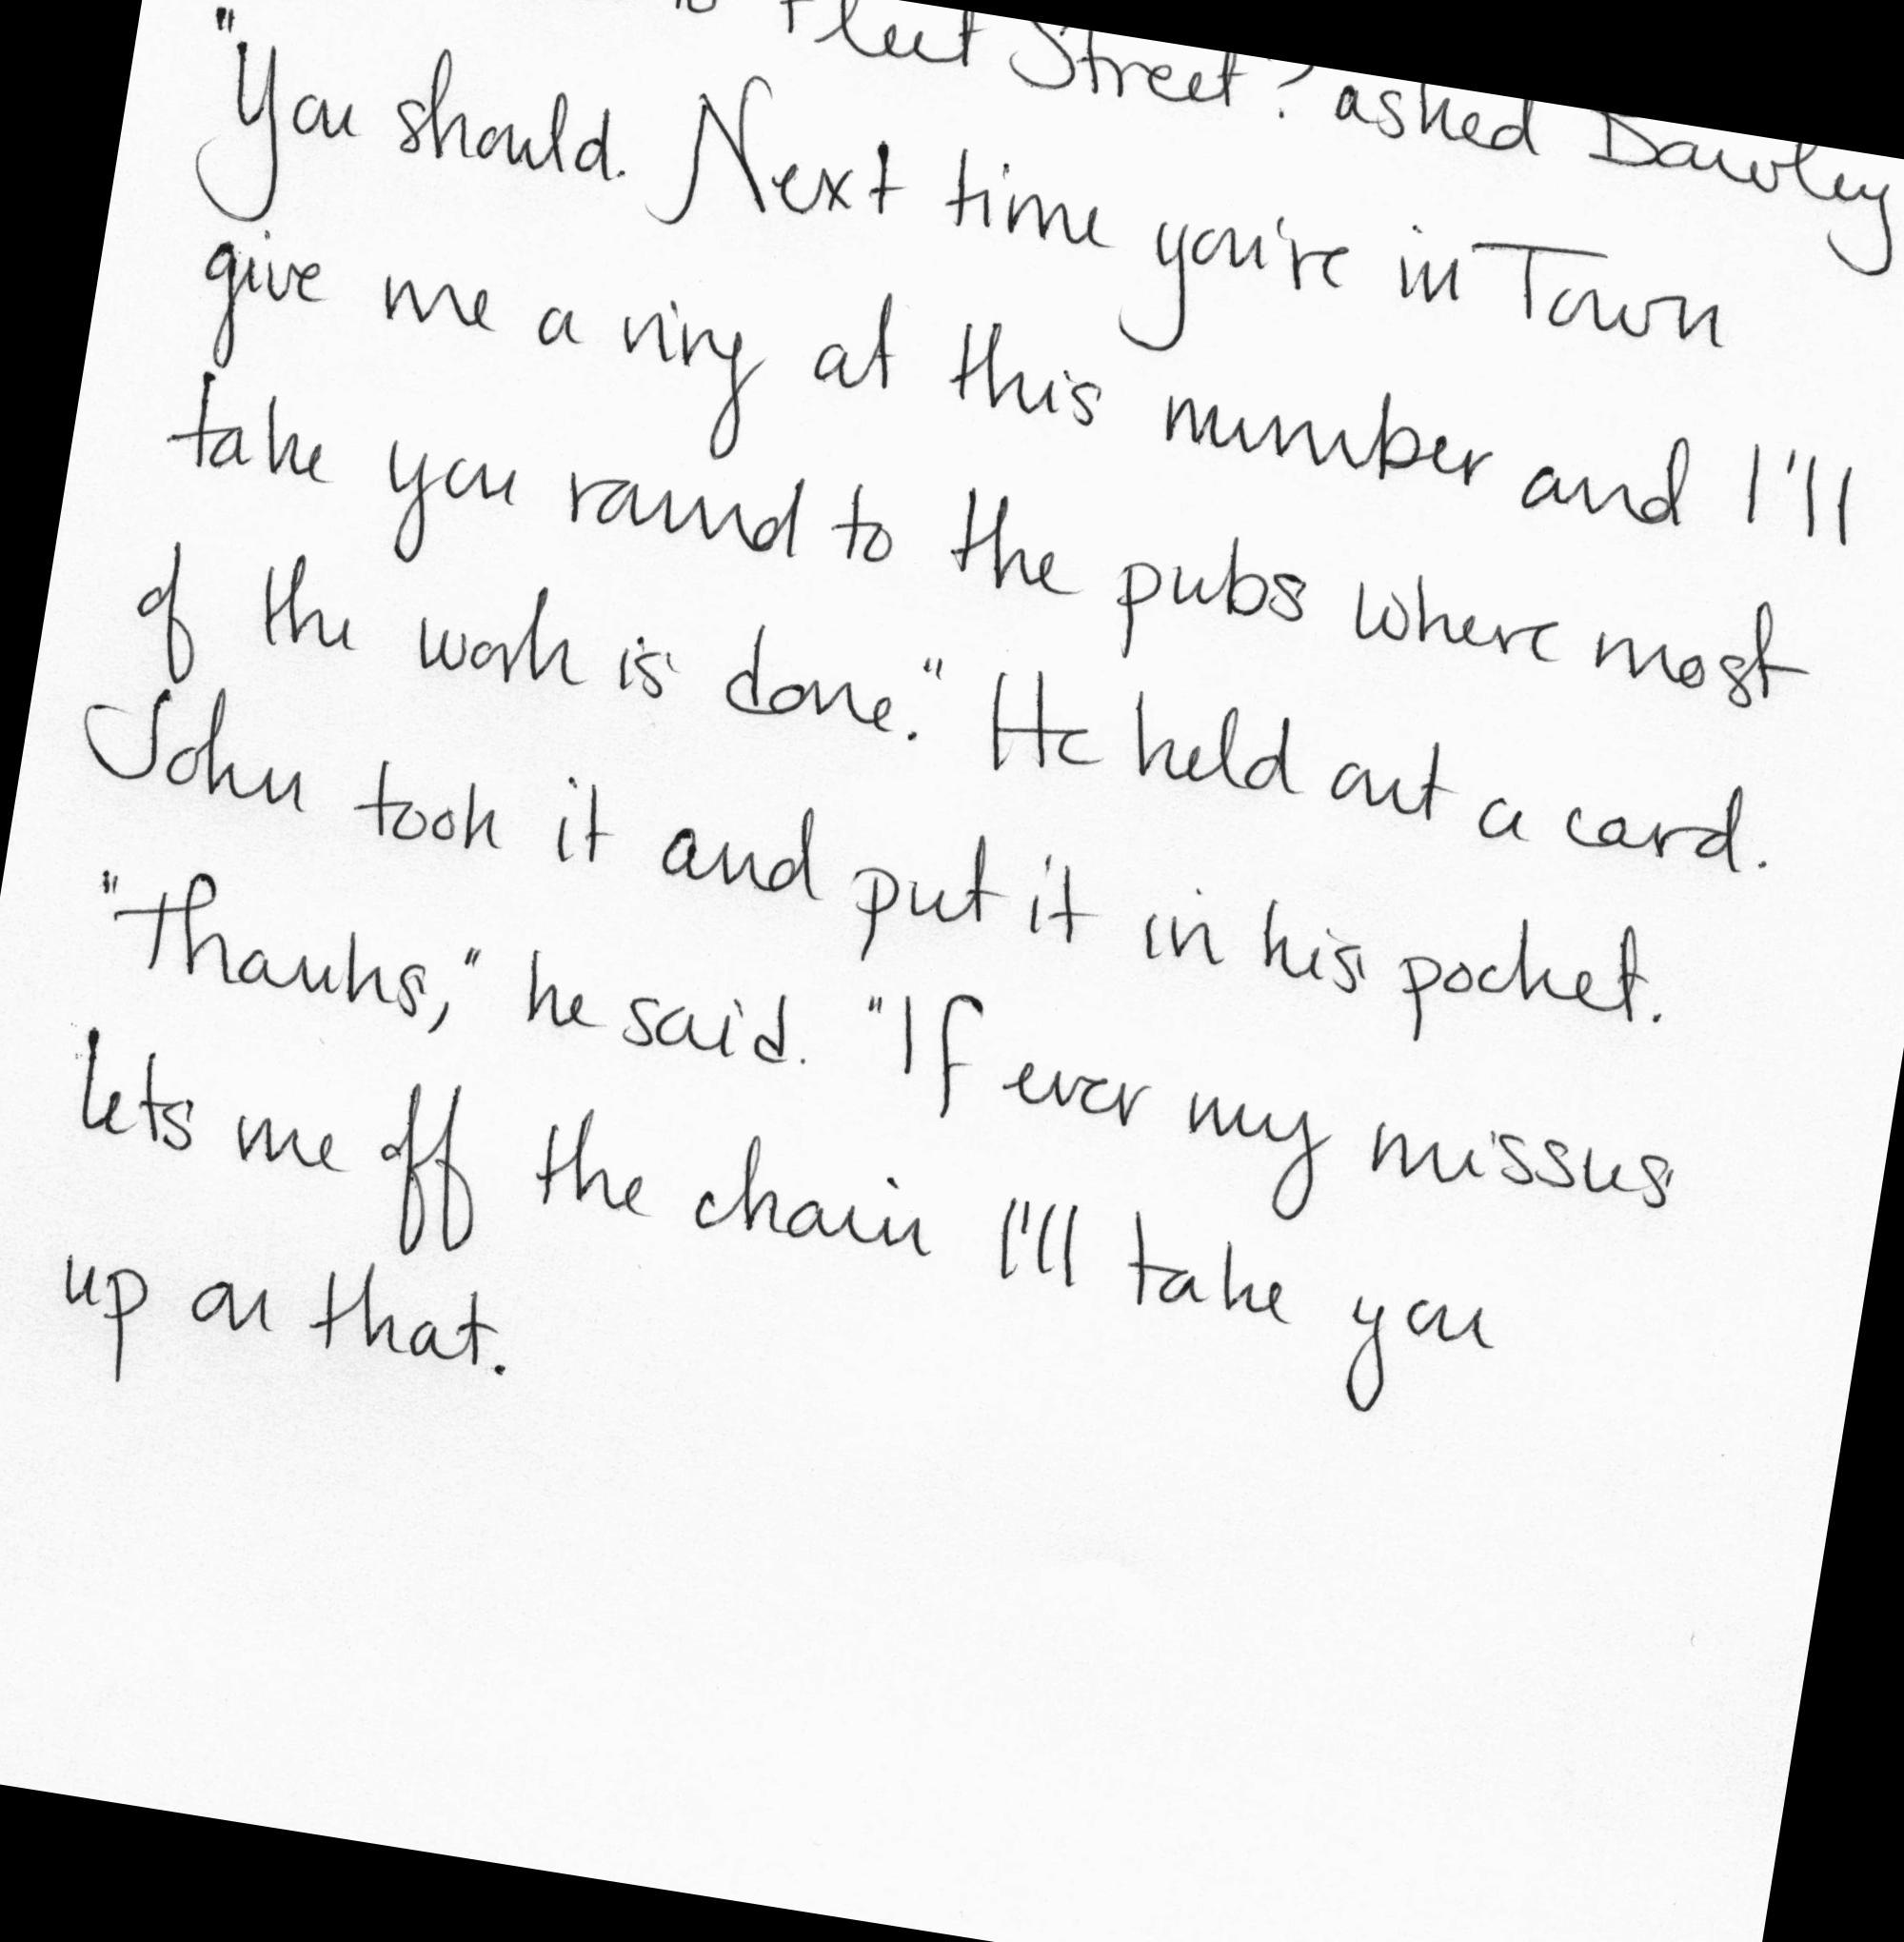 Fleet Street? asked Dawley
"You should. Next time you're in Town
give me a ring at this number and I'll
take you round to the pubs where most
of the work is done." He held out a card.
John took it and put it in his pocket.
"Thanks," he said. "If ever my missus
lets me off the chain I'll take you
up on that.